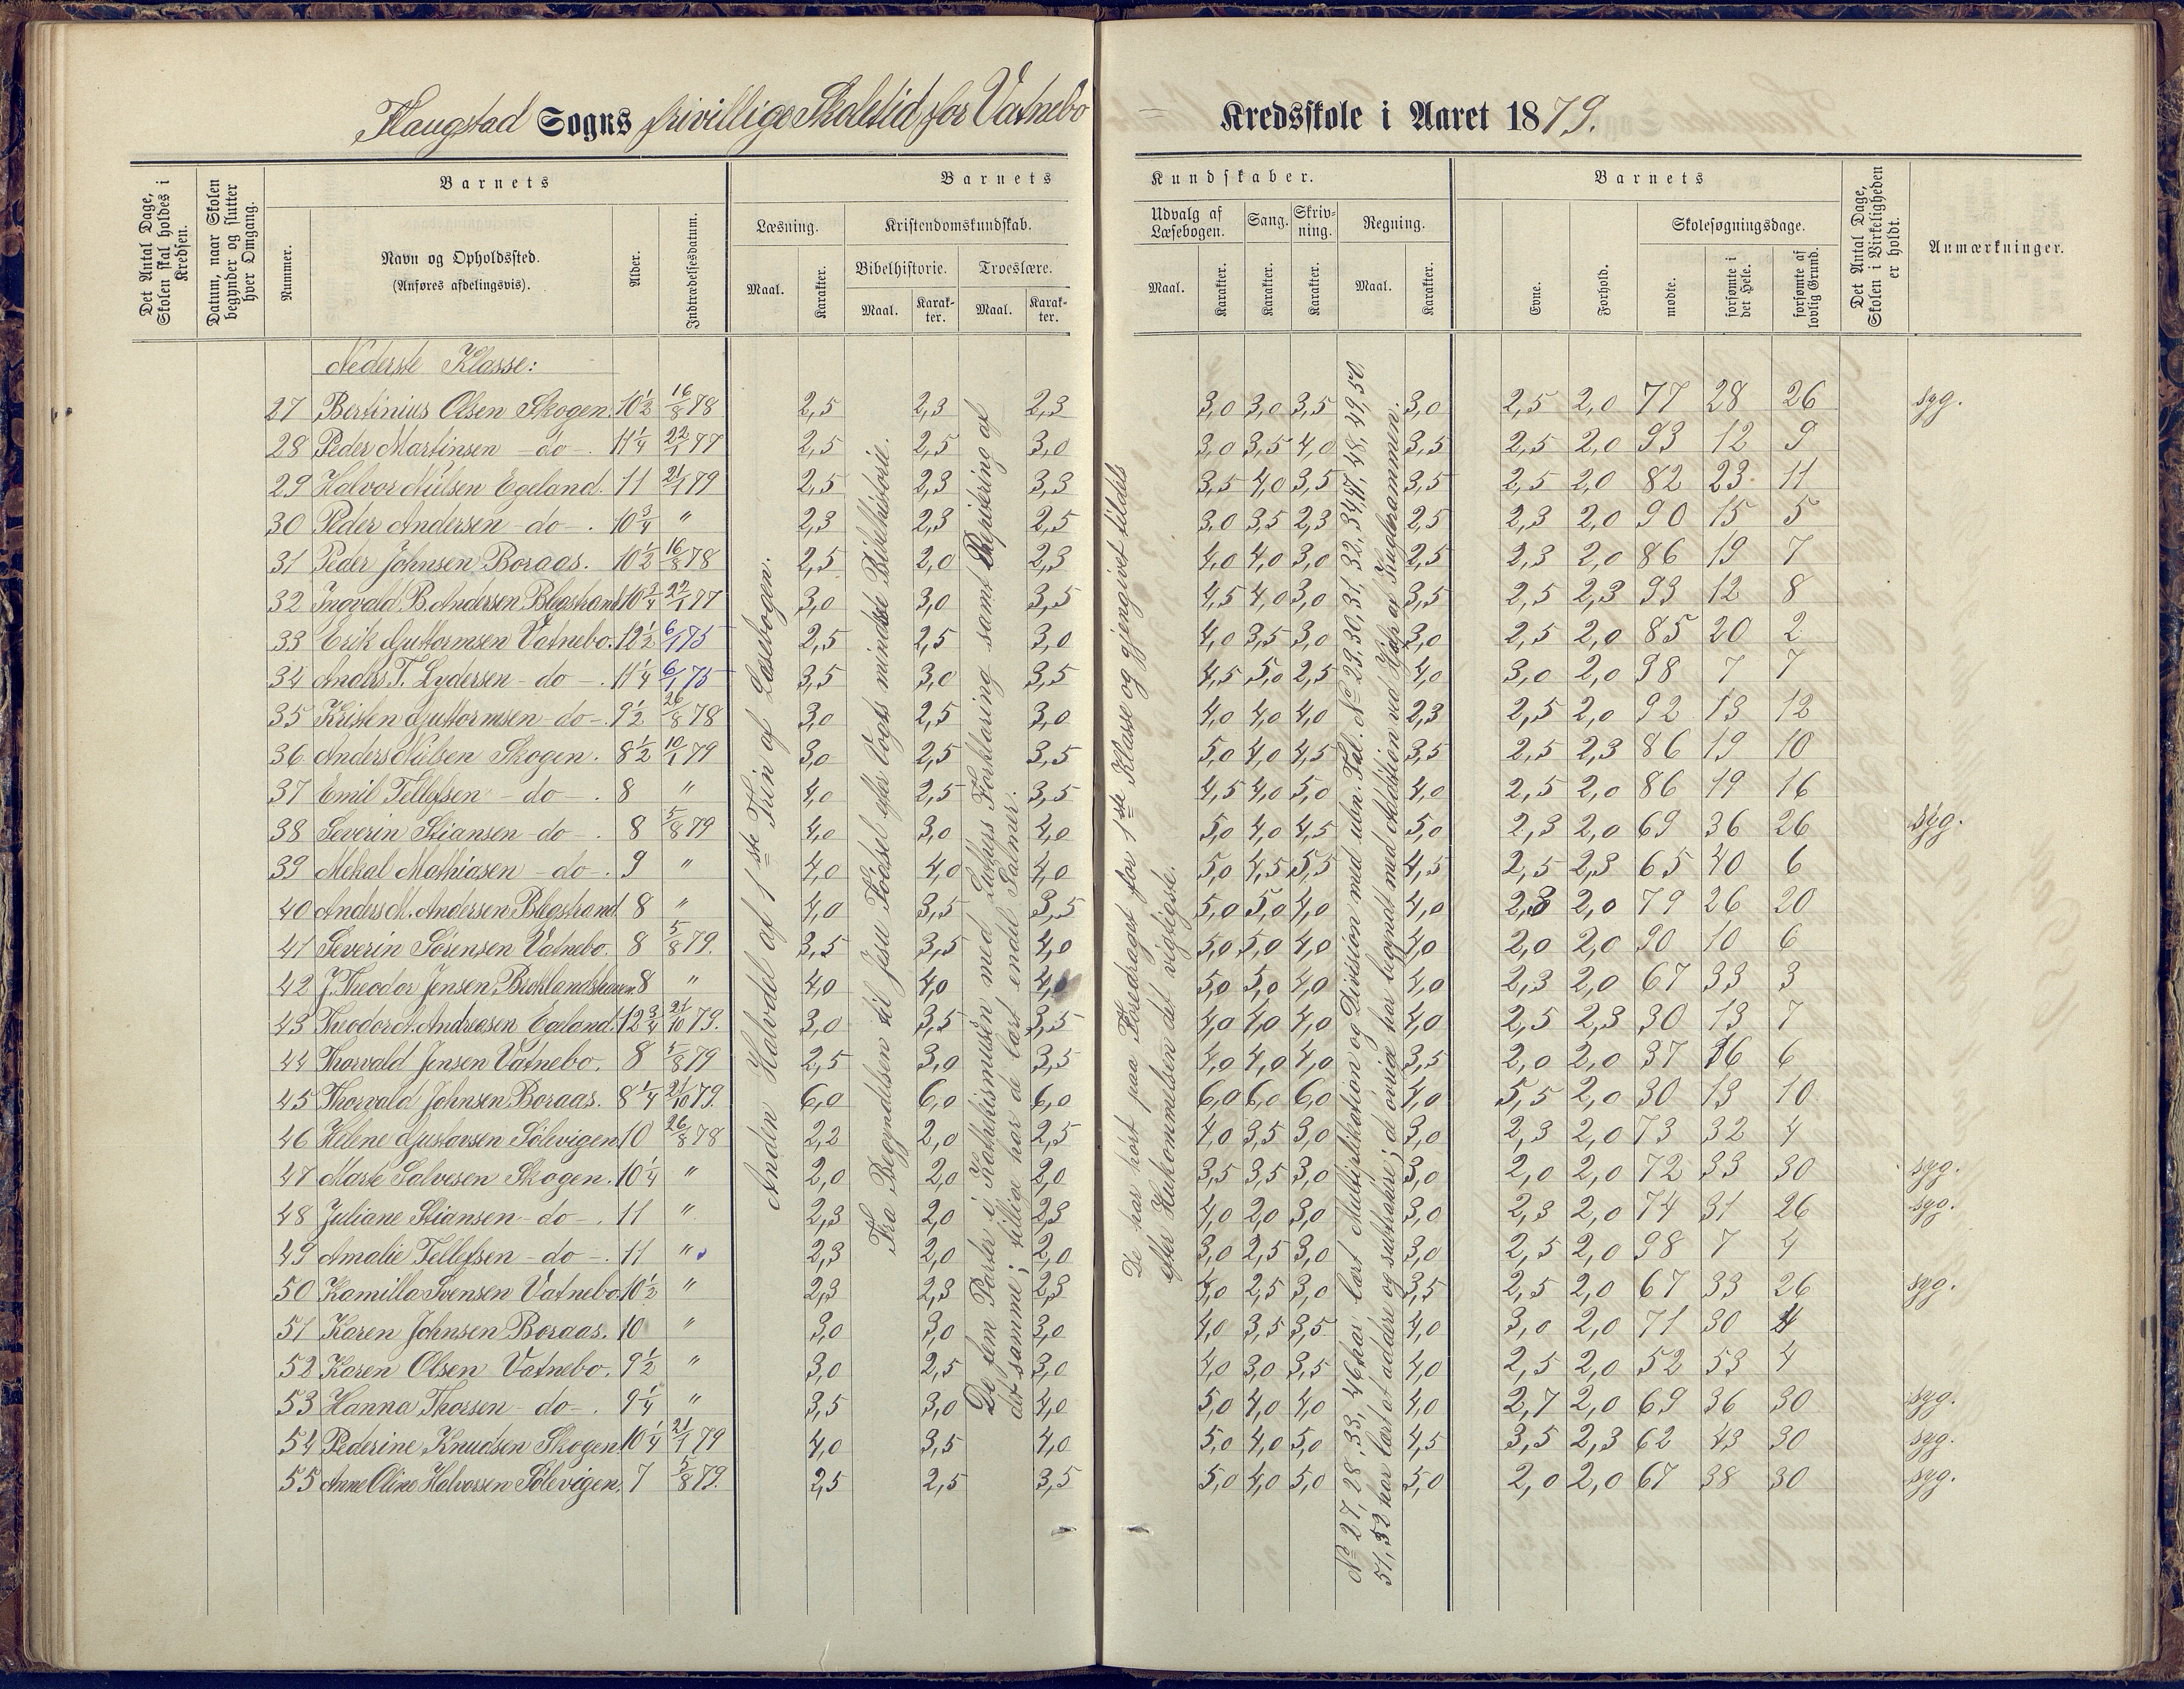 Flaugstad Sogns frivillige Skoletid for Vatnebo
Kredsskole i Aaret 1879.
Det Antal Dage, Skolen skal holdes i Kredsen.
Datum, naar Skolen begynder og slutter hver Omgang.
Barnets
Nummer.
Navn og Opholdssted.
(Anføres afdelingsvis).
Alder.
Indtrædelsesdatum.
Barnets
Læsning.
Maal.
Karakter.
Kristendomskundskab.
Bibelhistorie.
Maal.
Karakter.
Troeslære.
Maal.
Karakter.
Kundskaber.
Udvalg af Læsebogen.
Maal.
Karakter.
Sang.
Karakter.
Skrivning.
Karakter.
Regning.
Maal.
Karakter.
Barnets
Evne.
Forhold.
Skolesøgningsdage.
mødte.
forsømte i det Hele.
forsømte af lovlig Grund.
Det Antal Dage, Skolen i Virkeligheden er holdt.
Anmærkninger.
Nederste Klasse:
27 Bertinius Olsen Skogen. 10½ 16/8 78 2,5 2,3 2,3 3,0 3,0 3,5 3,0 2,5 2,0 77 28 26 syg.
28 Peder Martinsen - do -. 11¼ 22/1 77 2,5 2,5 3,0 3,0 3,5 4,0 3,5 2,5 2,0 93 12 9
29 Halvor Nilsen Egeland. 11 21/1 79 2,5 2,3 3,3 3,5 4,0 3,5 3,5 2,5 2,0 82 23 11
30 Peder Andersen - do -. 10¾ " 2,3 2,3 2,5 3,0 3,5 2,3 2,5 2,3 2,0 90 15 5
31 Peder Johnsen Boraas. 10½ 16/8 78 2,5 2,0 2,3 4,0 4,0 3,0 2,5 2,3 2,0 86 19 7
32 Ingvald B. Andersen 10¾ 22/1 77 3,0 3,0 3,5 4,5 4,0 3,0 3,5 2,5 2,3 93 12 8
33 Erik Guttormsen Vatnebo. 12½ 6/1 75 2,5 2,5 3,0 4,0 3,5 3,0 3,0 2,5 2,0 85 20 2
34 Anders T. Lydersen - do -. 11¼ 6/1 75 3,5 3,0 3,5 4,5 5,0 2,5 4,0 3,0 2,0 98 7 7
35 Kristen Guttormsen - do -. 9½ 26/8 78 3,0 2,5 3,0 4,0 4,0 4,0 2,3 2,5 2,0 92 13 12
36 Anders Nilsen Skogen. 8½ 10/1 79 3,0 2,5 3,5 5,0 4,0 4,5 3,5 2,5 2,3 86 19 10
37 Emil Tellefsen - do -. 8 " 4,0 2,5 3,5 4,5 4,0 5,0 4,0 2,5 2,0 86 19 16
38 Severin Stiansen - do -. 8 5/8 79 4,0 3,0 4,0 5,0 4,0 4,5 5,0 2,3 2,0 69 36 26 syg.
39 Mekal Mathiasen - do -. 9 " 4,0 4,0 4,0 5,0 4,5 5,5 4,5 2,5 2,3 65 40 6
40 Anders M. Andersen 8 " 4,0 3,5 3,5 5,0 5,0 4,0 4,0 2,8 2,0 79 26 20
41 Severin Sørensen Vatnebo. 8 5/8 79. 3,5 3,5 4,0 5,0 5,0 4,0 4,0 2,0 2,0 90 10 6
42 J. Theodor Jensen 8 " 4,0 4,0 4,0 5,0 5,0 4,0 4,0 2,3 2,0 67 33 3
43 Theodor A. Andreasen Egeland. 12¾ 21/10 79. 3,0 3,5 3,5 4,0 4,0 4,0 4,0 2,5 2,3 30 13 7
44 Thorvald Jensen Vatnebo. 8 5/8 79 2,5 3,0 3,5 4,0 4,0 4,0 3,5 2,0 2,0 37 16 6
45 Thorvald Johnsen Boraas. 8¼ 21/10 79. 6,0 6,0 6,0 6,0 6,0 6,0 4,0 5,5 2,0 30 13 10
46 Helene Gustavsen Sølevigen 10 26/8 78 2,2 2,0 2,5 4,0 3,5 3,0 3,0 2,3 2,0 73 32 4
47 Marte Salvesen Skogen. 10¼ " 2,0 2,0 2,0 3,5 3,5 3,0 3,0 2,0 2,0 72 33 30 syg.
48 Juliane Stiansen - do -. 11 " 2,3 2,0 2,3 4,0 2,0 3,0 3,0 2,3 2,0 74 31 26 syg.
49 Amalie Tellefsen - do -. 11 " 2,3 2,0 2,0 3,0 2,5 3,0 3,0 2,5 2,0 98 7 4
50 Kamilla Svensen Vatnebo. 10½ " 2,3 2,3 2,3 4,0 2,5 3,0 3,5 2,5 2,0 67 33 26 syg.
51 Karen Johnsen Boraas. 10 " 3,0 3,0 3,0 4,0 3,5 3,5 4,0 3,0 2,0 71 30 4
52 Karen Olsen Vatnebo. 9½ " 3,0 2,5 3,0 4,0 3,0 3,5 4,0 2,5 2,0 52 53 4
53 Hanna Thorsen - do -. 9¼ " 3,5 3,0 4,0 5,0 4,0 4,0 4,0 2,7 2,0 69 36 30 syg.
54 Pederine Knudsen Skogen 10¼ 21/1 79 4,0 3,5 4,0 5,0 4,0 5,0 4,5 3,5 2,3 62 43 30 syg.
55 Anne Oline Halvorsen Sølevigen. 7 5/8 79. 2,5 2,5 3,5 5,0 4,0 5,0 5,0 2,0 2,0 67 38 30 syg.
Anden Halvdel af 1ste Trin af Læsebogen.
Fra Begyndelsen til Jesu Fødsel efter Vogts mindste Bibelhistorie.
De fem Parter i Katekismusen med Luthers Forklaring samt Repetering af
det samme; tillige har de lært endel Salmer.
De har hørt paa Foredraget for 1ste Klasse og gjengivet tildels
efter Hukommelsen det vigtigste.
No 27, 28, 33, 46 har lært Multiplikation og Division med ubn. Tal. No 29, 30, 31, 32, 34, 47, 48, 49, 50
51, 52 har lært at addere og subtrahere; de øvrige har begyndt med Addition ved Hjælp af Kuglerammen.